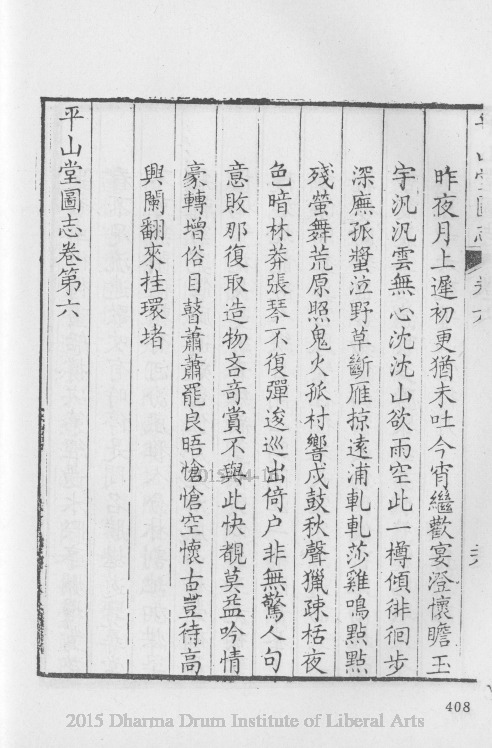 昨夜月上遲初更猶未吐今宵繼歡宴澄懷瞻玉
宇汎汎雲無心沈沈山欲雨空此一樽傾徘徊步
深廡孤螿泣野草斷雁掠遠浦軋軋莎雞鳴點點
殘螢舞荒原照鬼火孤村響戍鼓秋聲獵疎栝夜
色暗林莽張琴不復彈逡巡出倚户非無驚人句
意敗那復取造物吝奇賞不與此快覩莫孟吟情
豪轉增俗目瞽蕭蕭罷良晤愴愴空懷古豈待高
興闌翻來挂環堵
平山堂圖志卷第六
408
2015 Dharma Drum Institute of Liberal Arts